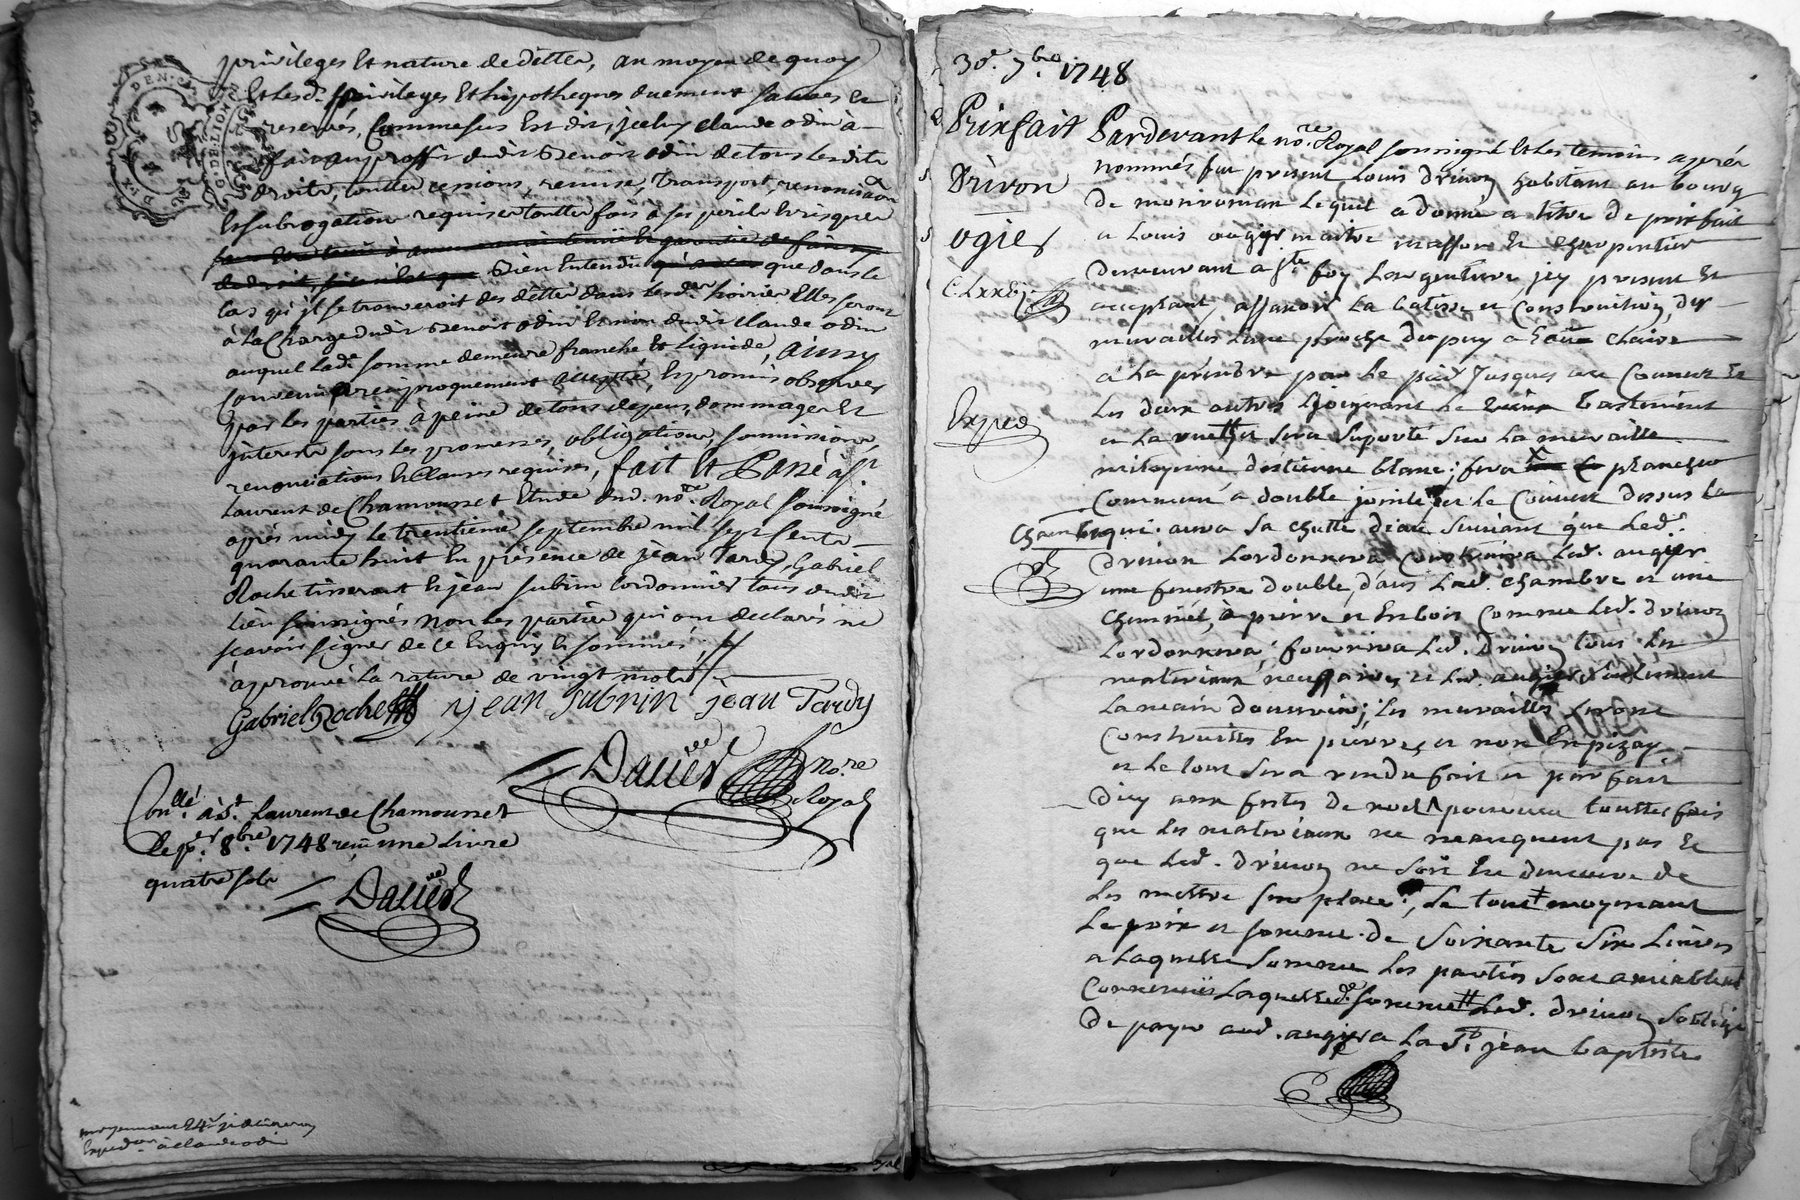 privileges et nature de dette, au moyen de quoy
et lesd. privileges et hipotheques duement sauves et
reservés, comme sus est dit, iceluy claude odin à
fait au proffit dudit Benoit odin de tous lesdits
droits, touttes cessions, remise, transport, renonciaon
et subrogation requise touttes fois à ses perils et risques
Bien entendu que dans le
cas qu'jl se trouveroit des dettes dans lesd. hoiries elles seront
à la charge dudit Benoit odin et non dudit claude odin
auquel lade somme demeure franche et liquide, ainsy
convenu reciproquement accepté, et promis observer
par les parties a peine de tous depens, dommages et
interests sous les promesses, obligations, soumissions,
renonciations et clauses requises, fait et Passé à St
Laurent de Chamousset Etude dud. nore Royal soussigné
après midy le trentieme septembre mil sept cents
quarante huit en présence de jean Tardy, Gabriel
Roche tisserant et jean subrin cordonnier tous dudit
lieu soussignés non les parties qui ont declarés ne
scavoir signer de ce enquis et sommés,
àprouvé la rature de vingt mots
Gabriel Roche jean subrin jean Tardy
Dauier nore
Royal
Conllé à St Laurent de Chamousset
le pr 8bre 1748 reçu une Livre
quatre sols
Dauier
à claude odin
DE LION
30e 7bre 1748
Prixfait
Drivon
ogier
Expedé
Pardevant le nore Royal soussigné et les temoins aprés
nommés fut present Louis drivon habitant au bourg
de monromant lequel a donné a titre de prixfait
a Louis augier maitre masson et charpentier
demeurant a Ste foy Largentiere, jcy present et
acceptant, assavoir la batisse et construction des
murailles
a la prendre par le pied jusques au couvert et
les deux autres joignant le vieux bastiment
et la sera suporté sur la muraille
mitoyenne d'estienne blanc; fera plancher
commun a double jointe et le couvert dessus la
chambre
aura sa chutte d'eau suivant que led.
drivon l'ordonnera construira led. augier
une fenestre double, dans lad. chambre et une
cheminée, à pierre et en bois comme led. drivon
l'ordonnera, fournira led. drivon tous les
materiaux necessaires et led. augier seulement
la main d'oeuvre; les murailles seront
construittes en pierres et non en pizay
et le tout sera rendu fait et parfait
d'icy aux festes de noel pourveu touttes fois
que les materiaux ne manquent pas et
que led. drivon ne soit en demeure de
les mettre sur place, le tout moyenant
le prix et somme de soixante six Livres
a laquelle somme les parties sont amiablemt
convenues laquelle de somme led. drivon s'oblige
de payer aud. augier a la St jean baptiste